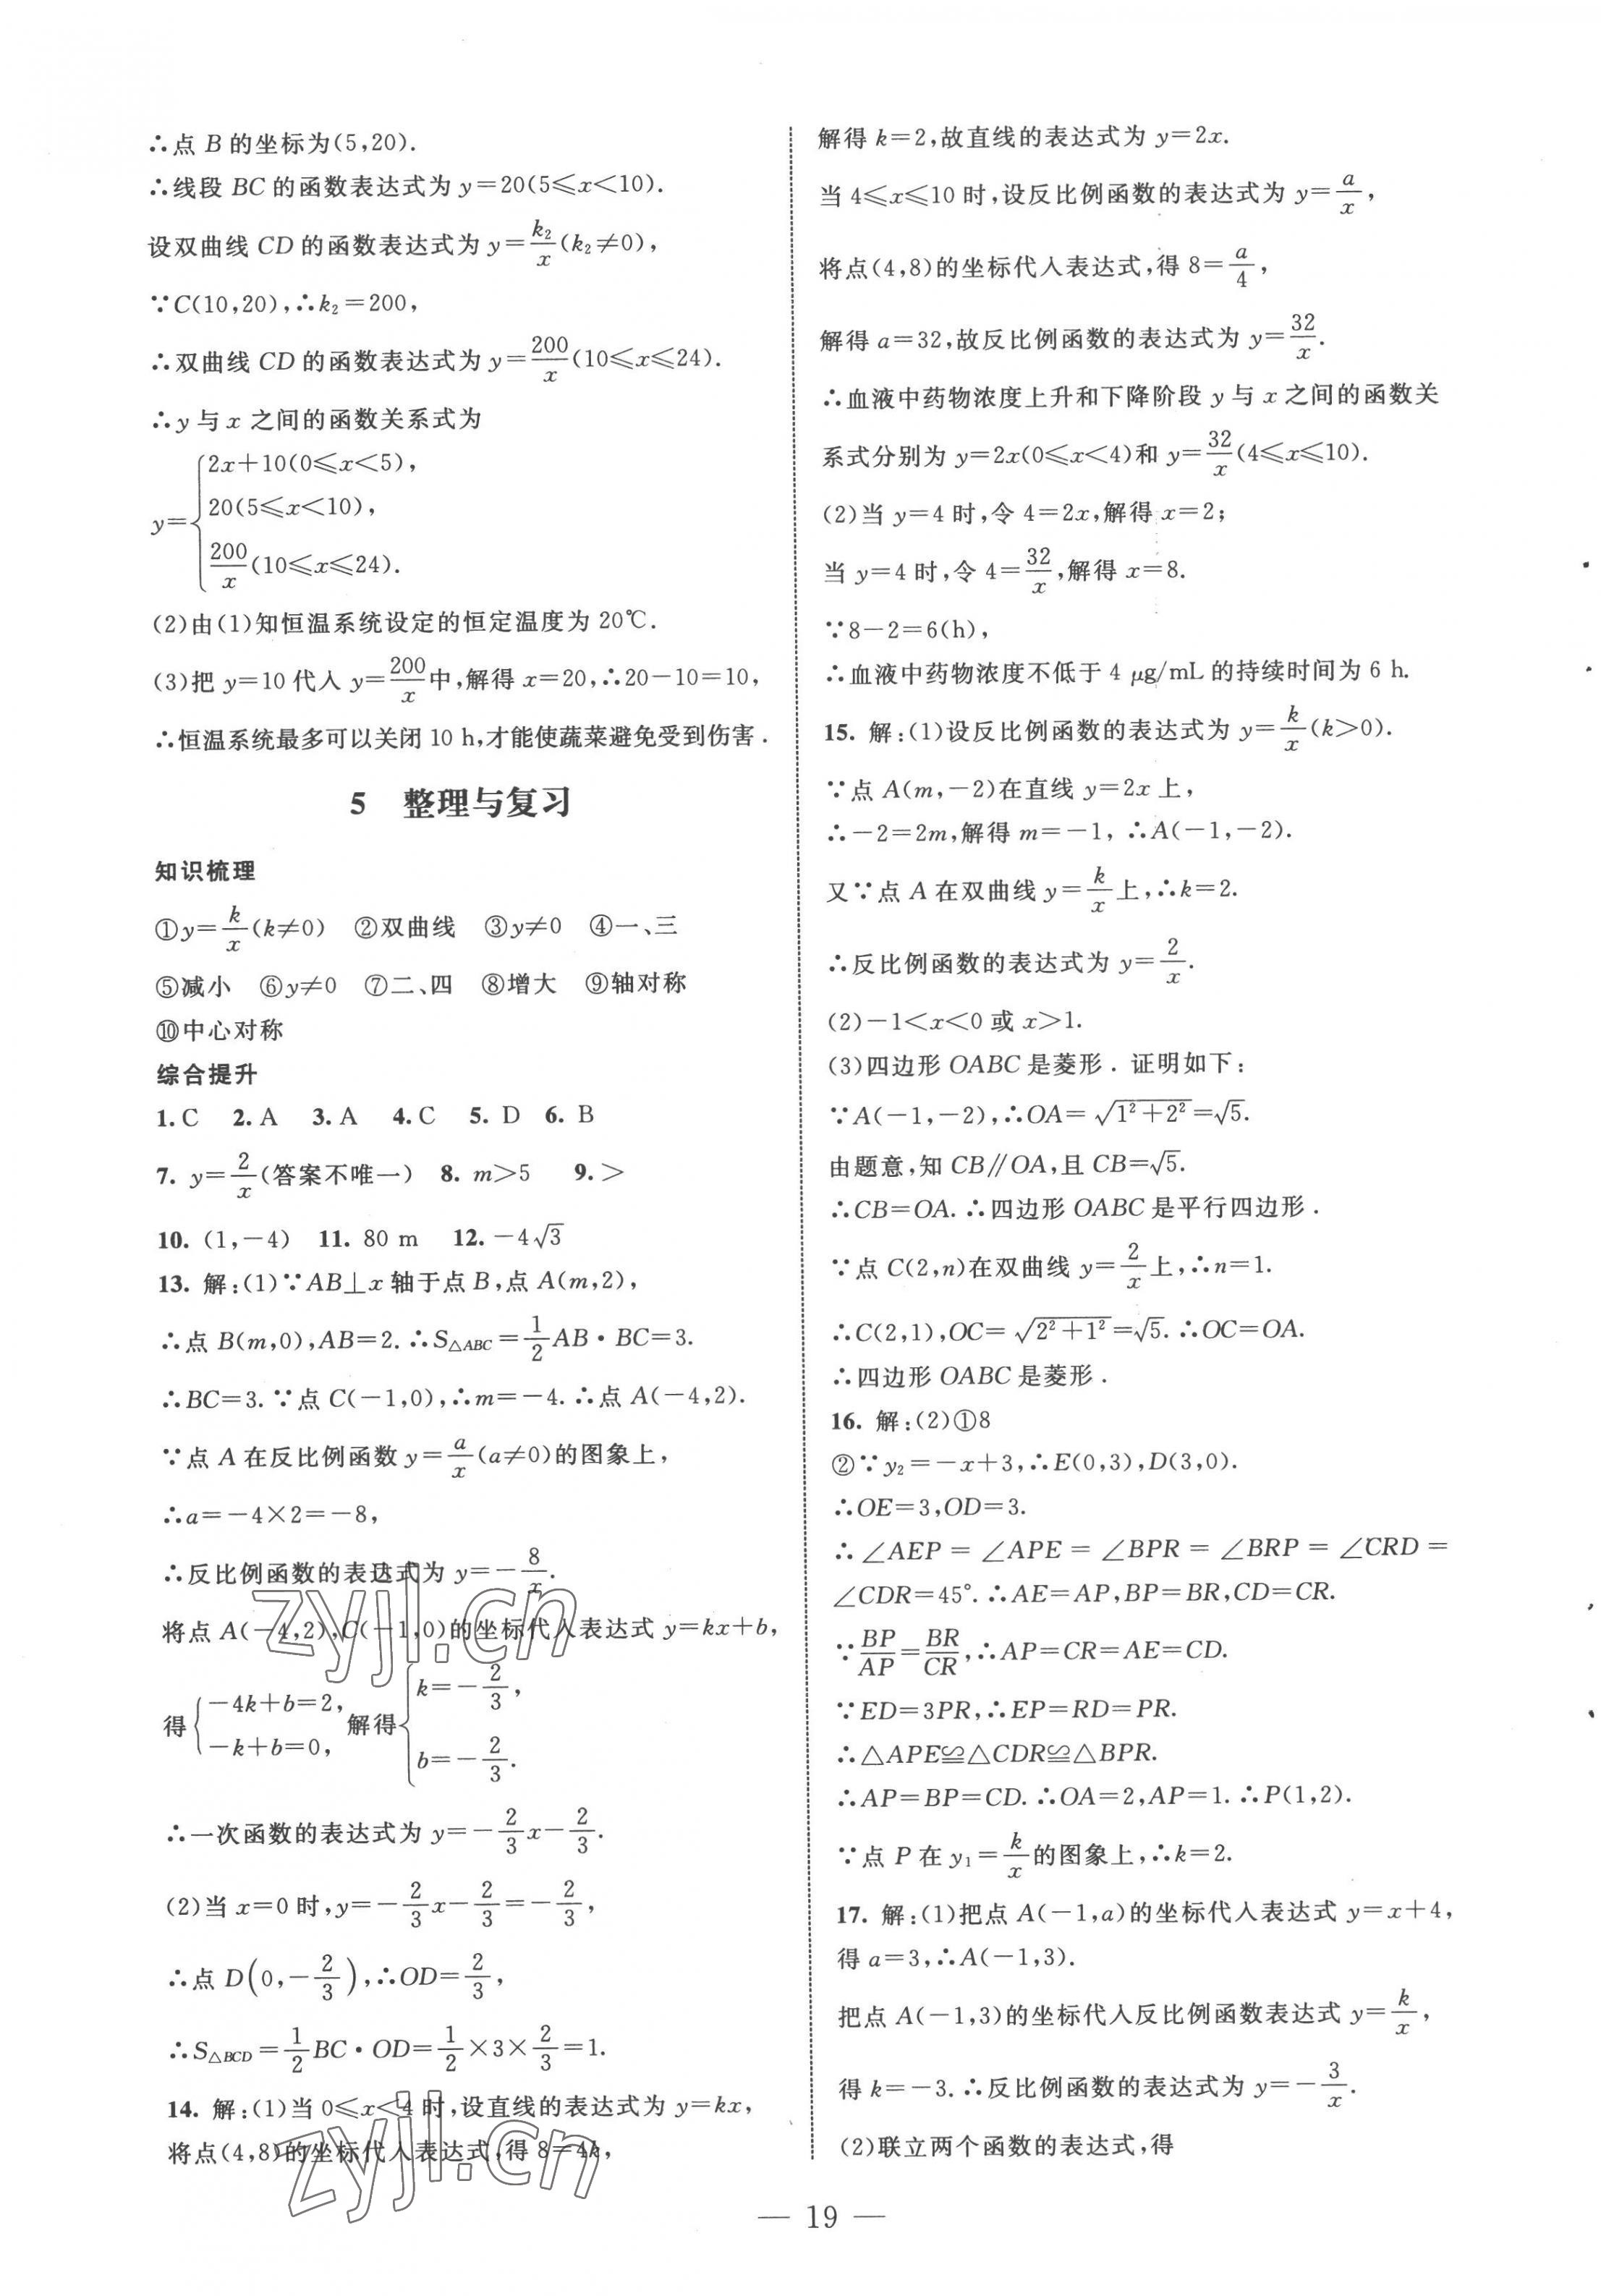 ∴点 B 的坐标为(5,20).
∴线段 BC 的函数表达式为 y=20(5≤x<10).
设双曲线 CD 的函数表达式为 y=k₂/x(k₂≠0),
∵C(10,20),∴k₂=200,
∴双曲线 CD 的函数表达式为 y=200/x(10≤x≤24).
∴y 与 x 之间的函数关系式为
y={2x+10(0≤x<5),
20(5≤x<10),
200/x(10≤x≤24).
(2)由(1)知恒温系统设定的恒定温度为 20℃.
(3)把 y=10 代入 y=200/x中,解得 x=20,∴20-10=10,
∴恒温系统最多可以关闭 10 h,才能使蔬菜避免受到伤害.
5 整理与复习
知识梳理
①y=k/x(k≠0) ②双曲线 ③y≠0 ④一、三
⑤减小 ⑥y≠0 ⑦二、四 ⑧增大 ⑨轴对称
⑩中心对称
综合提升
1. C 2. A 3. A 4. C 5. D 6. B
7. y=2/x(答案不唯一) 8. m>5 9. >
10. (1,-4) 11. 80 m 12. -4√3
13. 解:(1)∵AB⊥x 轴于点 B,点 A(m,2),
∴点 B(m,0),AB=2. ∴S△ABC=1/2AB·BC=3.
∴BC=3. ∵点 C(-1,0),∴m=-4. ∴点 A(-4,2).
∵点 A 在反比例函数 y=a/x(a≠0)的图象上,
∴a=-4×2=-8,
∴反比例函数的表达式为 y=-8/x.
将点 A(-4,2),C(-1,0)的坐标代入表达式 y=kx+b,
得{-4k+b=2, -k+b=0, 解得{k=-2/3, b=-2/3.
∴一次函数的表达式为 y=-2/3x-2/3.
(2)当 x=0 时,y=-2/3x-2/3=-2/3,
∴点 D(0,-2/3),∴OD=2/3,
∴S△BCD=1/2BC·OD=1/2×3×2/3=1.
14. 解:(1)当 0≤x<4 时,设直线的表达式为 y=kx,
将点(4,8)的坐标代入表达式,得 8=4k,
解得 k=2,故直线的表达式为 y=2x.
当 4≤x≤10 时,设反比例函数的表达式为 y=a/x,
将点(4,8)的坐标代入表达式,得 8=a/4,
解得 a=32,故反比例函数的表达式为 y=32/x.
∴血液中药物浓度上升和下降阶段 y 与 x 之间的函数关
系式分别为 y=2x(0≤x<4)和 y=32/x(4≤x≤10).
(2)当 y=4 时,令 4=2x,解得 x=2;
当 y=4 时,令 4=32/x,解得 x=8.
∵8-2=6(h),
∴血液中药物浓度不低于 4 μg/mL 的持续时间为 6 h.
15. 解:(1)设反比例函数的表达式为 y=k/x(k>0).
∵点 A(m,-2)在直线 y=2x 上,
∴-2=2m,解得 m=-1, ∴A(-1,-2).
又∵点 A 在双曲线 y=k/x上,∴k=2.
∴反比例函数的表达式为 y=2/x.
(2)-1<x<0 或 x>1.
(3)四边形 OABC 是菱形. 证明如下:
∵A(-1,-2),∴OA=√(1²+2²)=√5.
由题意,知 CB∥OA,且 CB=√5.
∴CB=OA. ∴四边形 OABC 是平行四边形.
∵点 C(2,n)在双曲线 y=2/x上,∴n=1.
∴C(2,1),OC=√(2²+1²)=√5. ∴OC=OA.
∴四边形 OABC 是菱形.
16. 解:(2)①8
②∵y₂=-x+3,∴E(0,3),D(3,0).
∴OE=3,OD=3.
∴∠AEP=∠APE=∠BPR=∠BRP=∠CRD=
∠CDR=45°. ∴AE=AP,BP=BR,CD=CR.
∵BP/AP=BR/CR,∴AP=CR=AE=CD.
∵ED=3PR,∴EP=RD=PR.
∴△APE≌△CDR≌△BPR.
∴AP=BP=CD. ∴OA=2,AP=1. ∴P(1,2).
∵点 P 在 y₁=k/x的图象上,∴k=2.
17. 解:(1)把点 A(-1,a)的坐标代入表达式 y=x+4,
得 a=3,∴A(-1,3).
把点 A(-1,3)的坐标代入反比例函数表达式 y=k/x,
得 k=-3. ∴反比例函数的表达式为 y=-3/x.
(2)联立两个函数的表达式,得
— 19 —
zyjl.cn
zyjl.cn